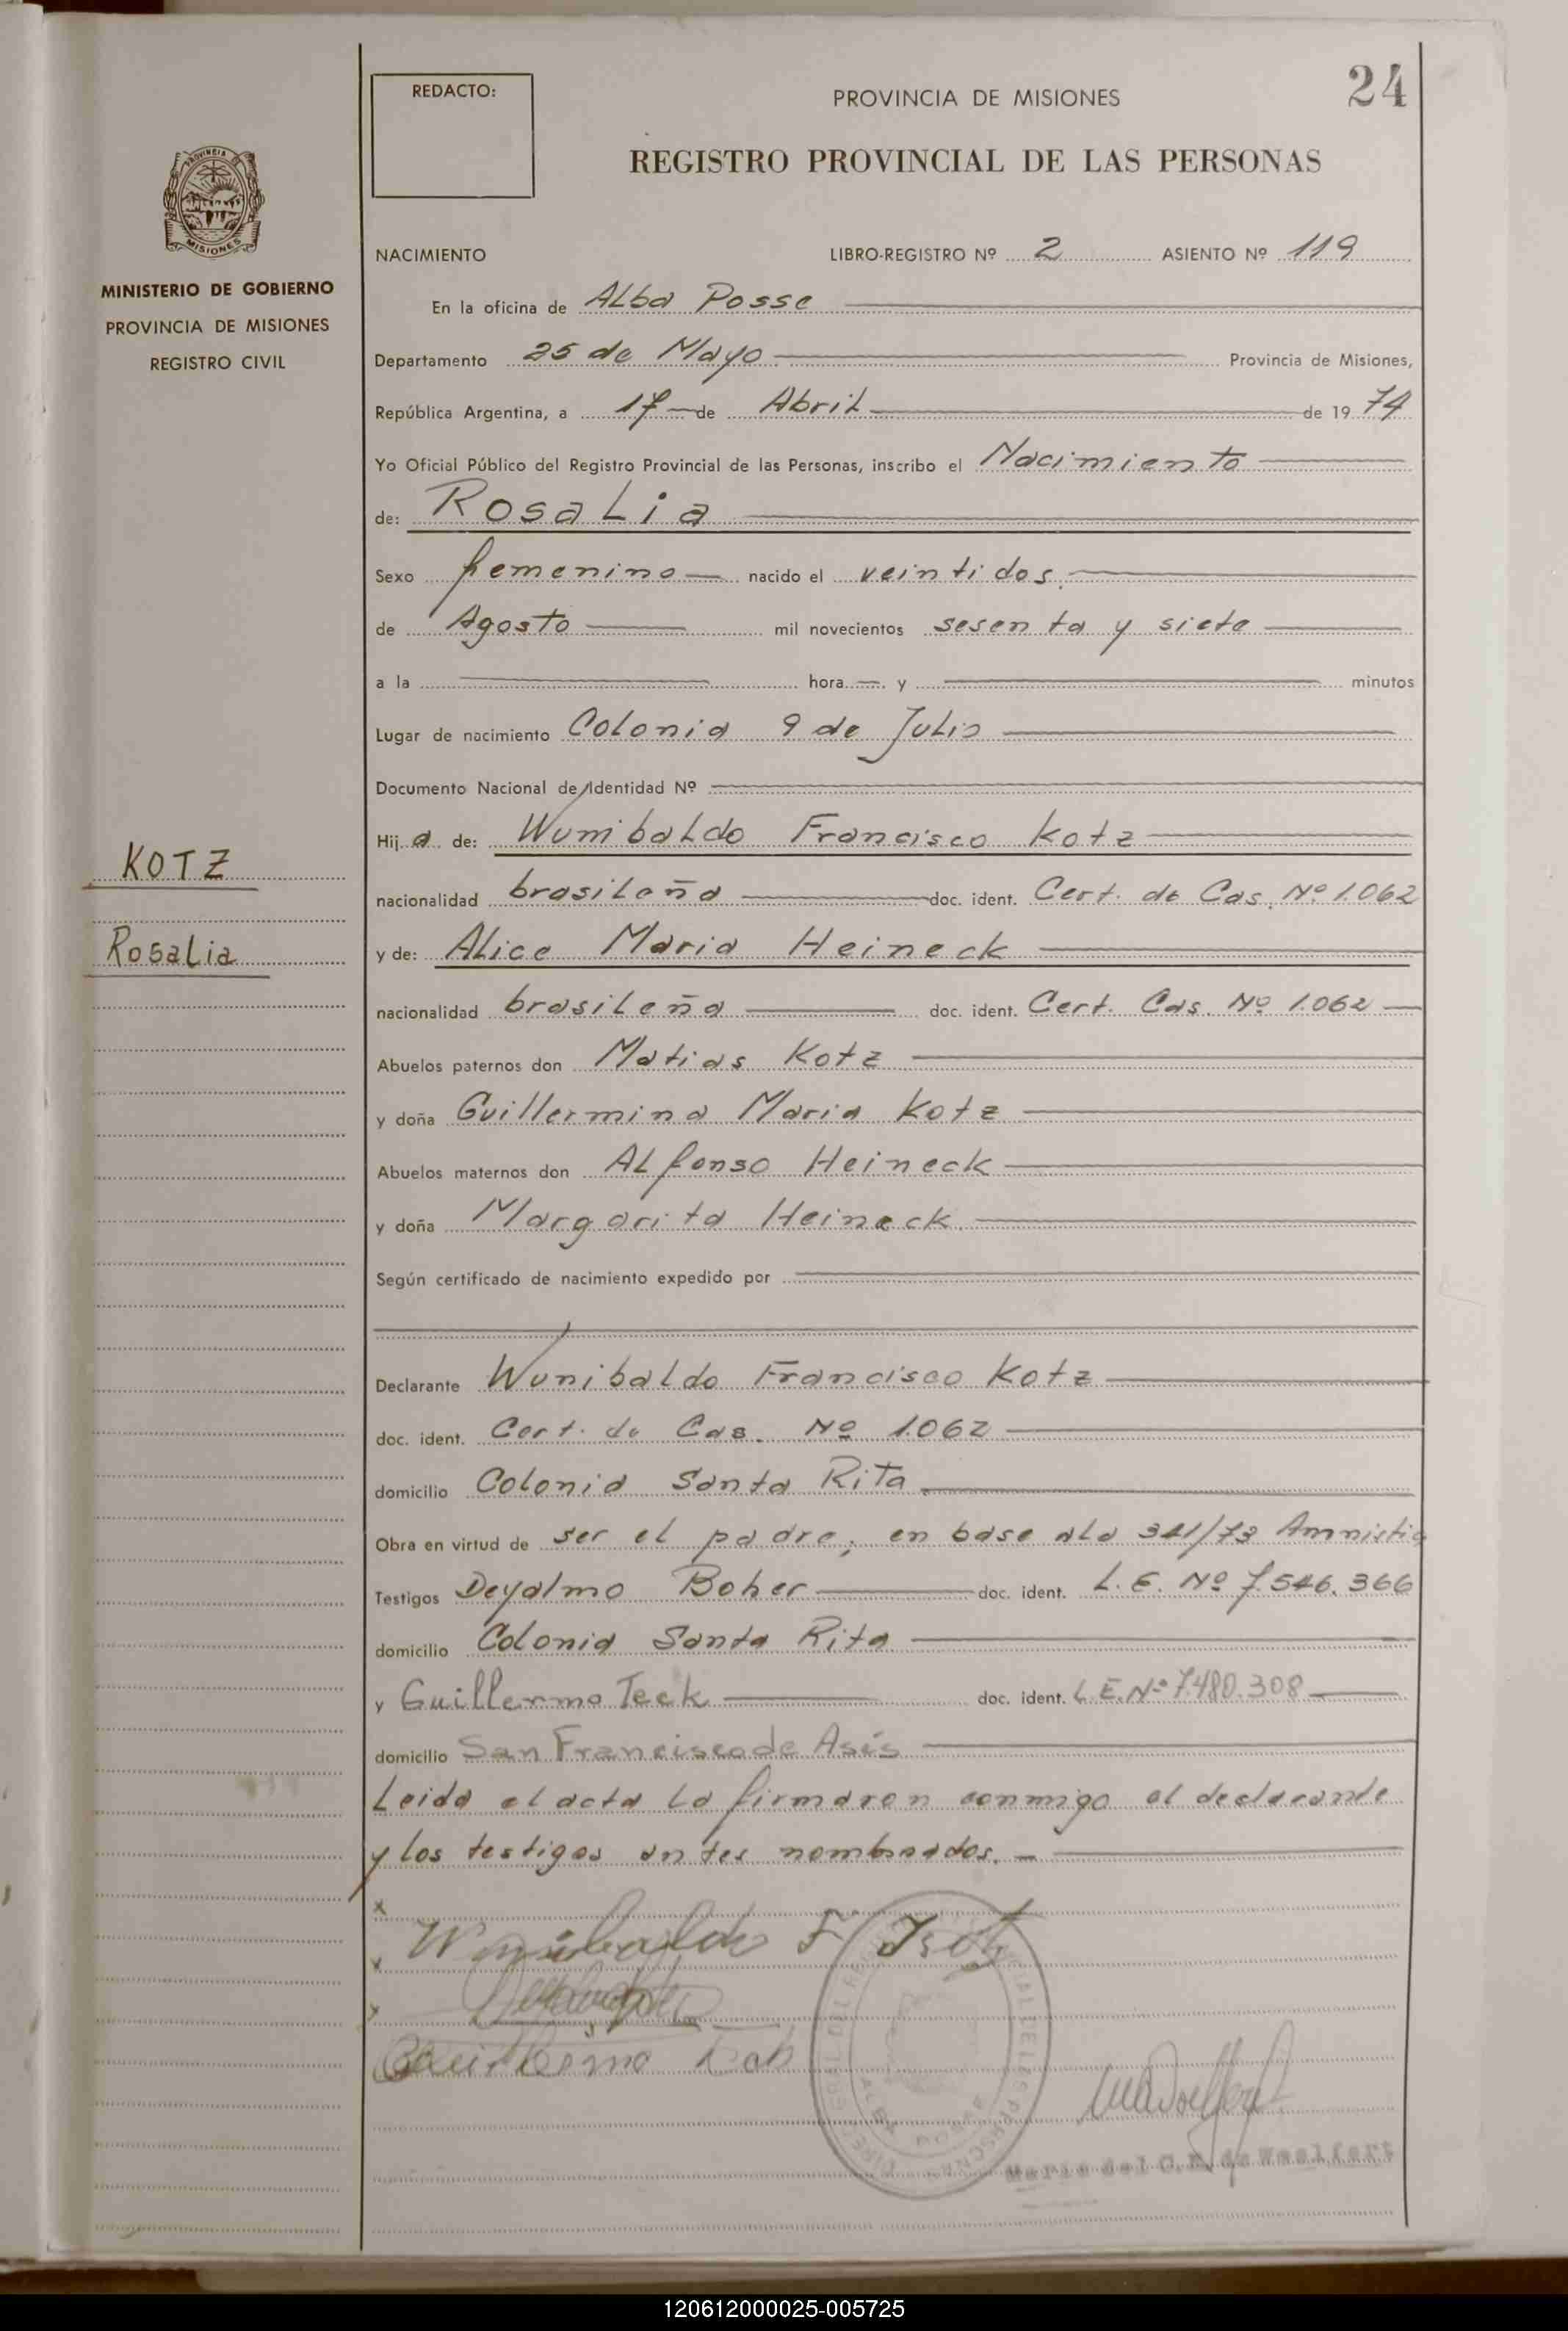 24
REDACTO:
PROVINCIA DE MISIONES
REGISTRO PROVINCIAL DE LAS PERSONAS
PROVINCIA DE
MISIONES
MINISTERIO DE GOBIERNO
PROVINCIA DE MISIONES
REGISTRO CIVIL
KOTZ
Rosalia
NACIMIENTO LIBRO-REGISTRO Nº 2 ASIENTO Nº 119
En la oficina de Alba Posse
Departamento 25 de Mayo Provincia de Misiones,
República Argentina, a 17 de Abril de 19 74
Yo Oficial Público del Registro Provincial de las Personas, inscribo el Nacimiento
de: Rosalia
Sexo femenino nacido el veintidos.
de Agosto mil novecientos sesenta y siete
a la hora y minutos
Lugar de nacimiento Colonia 9 de Julio
Documento Nacional de Identidad Nº
Hij a de: Wunibaldo Francisco Kotz
nacionalidad brasileña doc. ident. Cert. de Cas. Nº 1.062
y de: Alice Maria Heineck
nacionalidad brasileña doc. ident. Cert. Cas. Nº 1.062
Abuelos paternos don Matias Kotz
y doña Guillermina Maria Kotz
Abuelos maternos don Alfonso Heineck
y doña Margarita Heineck.
Según certificado de nacimiento expedido por
Declarante Wunibaldo Francisco Kotz
doc. ident. Cert. de Cas. Nº 1.062
domicilio Colonia Santa Rita.
Obra en virtud de ser el padre; en base ala 341/73 Amnistia
Testigos Deyalmo Boher doc. ident. L.E. Nº 7.546.366
domicilio Colonia Santa Rita
y Guillermo Teck doc. ident. L.E. Nº 7.480.308
domicilio San Francisco de Asís
Leida el acta la firmaron conmigo el declarante
y los testigos antes nombrados.
x
x Wunibaldo F
x
Guillermo
ALBA POSSE
Maria del C. de Woelfert
120612000025-005725